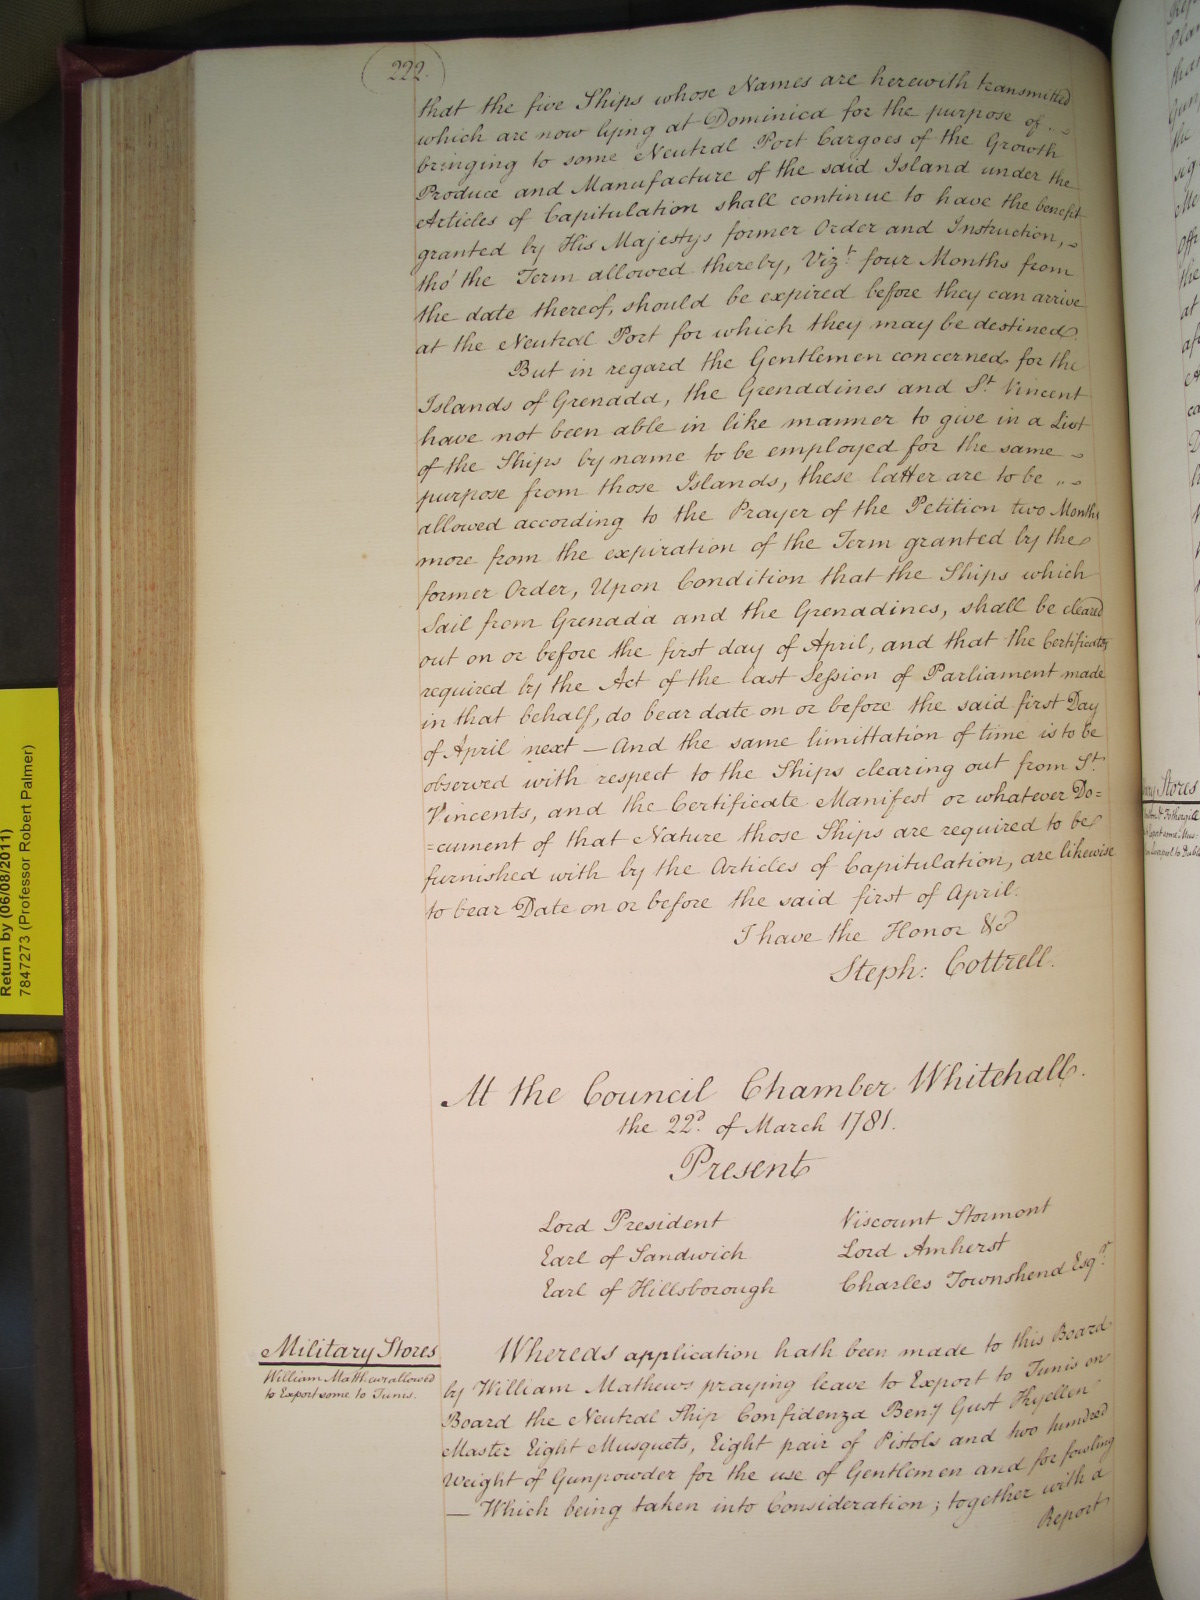 222.
that the five Ships whose Names are herewith transmitted
which are now lying at Dominica for the purpose of
bringing to some Neutral Port Cargoes of the Growth
Produce and Manufacture of the said Island under the
Articles of Capitulation shall continue to have the benefit
granted by His Majestys former Order and Instruction,
tho' the Term allowed thereby, Vizt. four Months from
the date thereof, should be expired before they can arrive
at the Neutral Port for which they may be destined
But in regard the Gentlemen concerned for the
Islands of Grenada, the Grenadines and St. Vincent
have not been able in like manner to give in a List
of the Ships by name to be employed for the same
purpose from those Islands, these latter are to be
allowed according to the Prayer of the Petition two Months
more from the expiration of the Term granted by the
former Order, Upon Condition that the Ships which
Sail from Grenada and the Grenadines, shall be cleared
out on or before the first day of April, and that the Certificates
required by the Act of the last Session of Parliament made
in that behalf, do bear date on or before the said first Day
of April next — And the same limittation of time is to be
observed with respect to the Ships clearing out from St.
Vincents, and the Certificate Manifest or whatever Do=
=cument of that Nature those Ships are required to be
furnished with by the Articles of Capitulation, are likewise
to bear Date on or before the said first of April.
I have the Honor &c
Steph: Cottrell.
At the Council Chamber Whitehall.
the 22d. of March 1781.
Present
Lord President
Earl of Sandwich
Earl of Hillsborough
Viscount Stormont
Lord Amherst
Charles Townshend Esqr.
Military Stores
William Matthews allowed
to Export some to Tunis.
Whereas application hath been made to this Board
by William Mathews praying leave to Export to Tunis on
Board the Neutral Ship Confidenza Benj Gust Thyellen
Master Eight Musquets, Eight pair of Pistols and two hundred
Weight of Gunpowder for the use of Gentlemen and for fowling
— Which being taken into Consideration; together with a
Report
Return by (06/08/2011)
7847273 (Professor Robert Palmer)
Stores